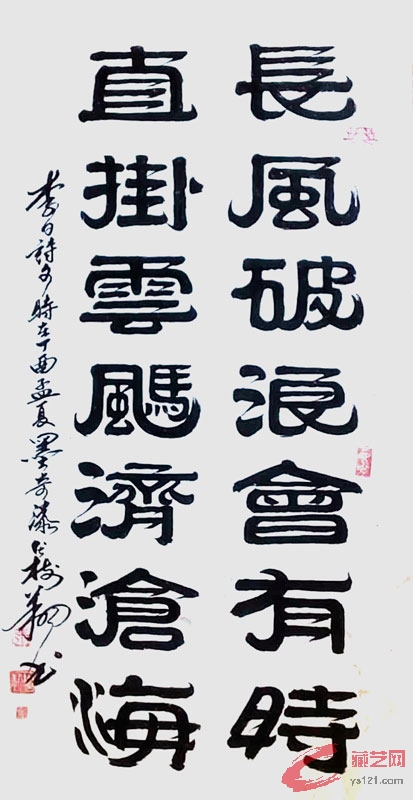 長風破浪會有時
直掛雲颿濟滄海
李白詩句時在丁酉孟夏墨奇 樹翔书
藏艺网
ys121.com